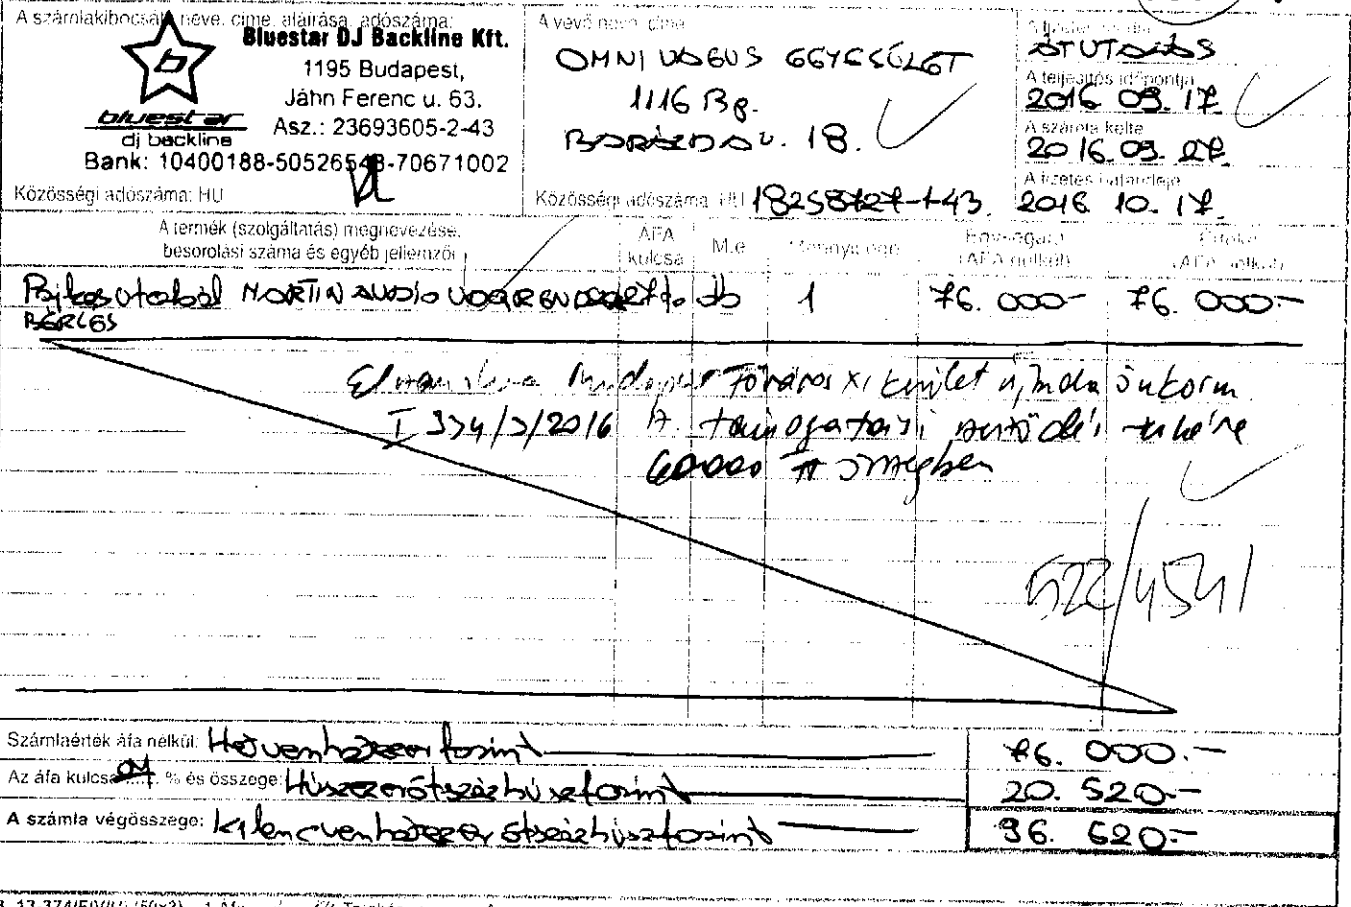 A számlakibocsátó neve, címe, aláírása, adószáma:
Bluestar DJ Backline Kft.
1195 Budapest,
Jáhn Ferenc u. 63.
Asz.: 23693605-2-43
bluestar
dj backline
Bank: 10400188-50526548-70671002
Közösségi adószáma: HU
A vevő neve, címe
OMNI VAGUS EGYESÜLET
1116 Bp.
BARÁZDA U. 18.
Közösségi adószáma: HU 18258727-1-43.
ÁTUTALÁS
A teljesítés időpontja
2016 09. 17
A számla kelte
2016. 09. 27.
A fizetés határideje
2016. 10. 17.
A termék (szolgáltatás) megnevezése,
besorolási száma és egyéb jellemzői
ÁFA
kulcsa
M.e
Mennyiség
Egységára
(ÁFA nélkül)
Értéke
(ÁFA nélkül)
MARTIN AUDIO db 1 76. 000- 76. 000.-
BÉRLÉS
Budapest Főváros XI kerület Újbuda Önkorm.
I 334/3/2016 támogatási szerződés terhére
60000 Ft összegben
522/4541
Számlaérték áfa nélkül: Hetvenhatezer forint 76. 000.-
Az áfa kulcsa 27. % és összege: Húszezerötszázhúszforint 20. 520.-
A számla végösszege: Kilencvenhatezer ötszázhúszforint 96. 520.-